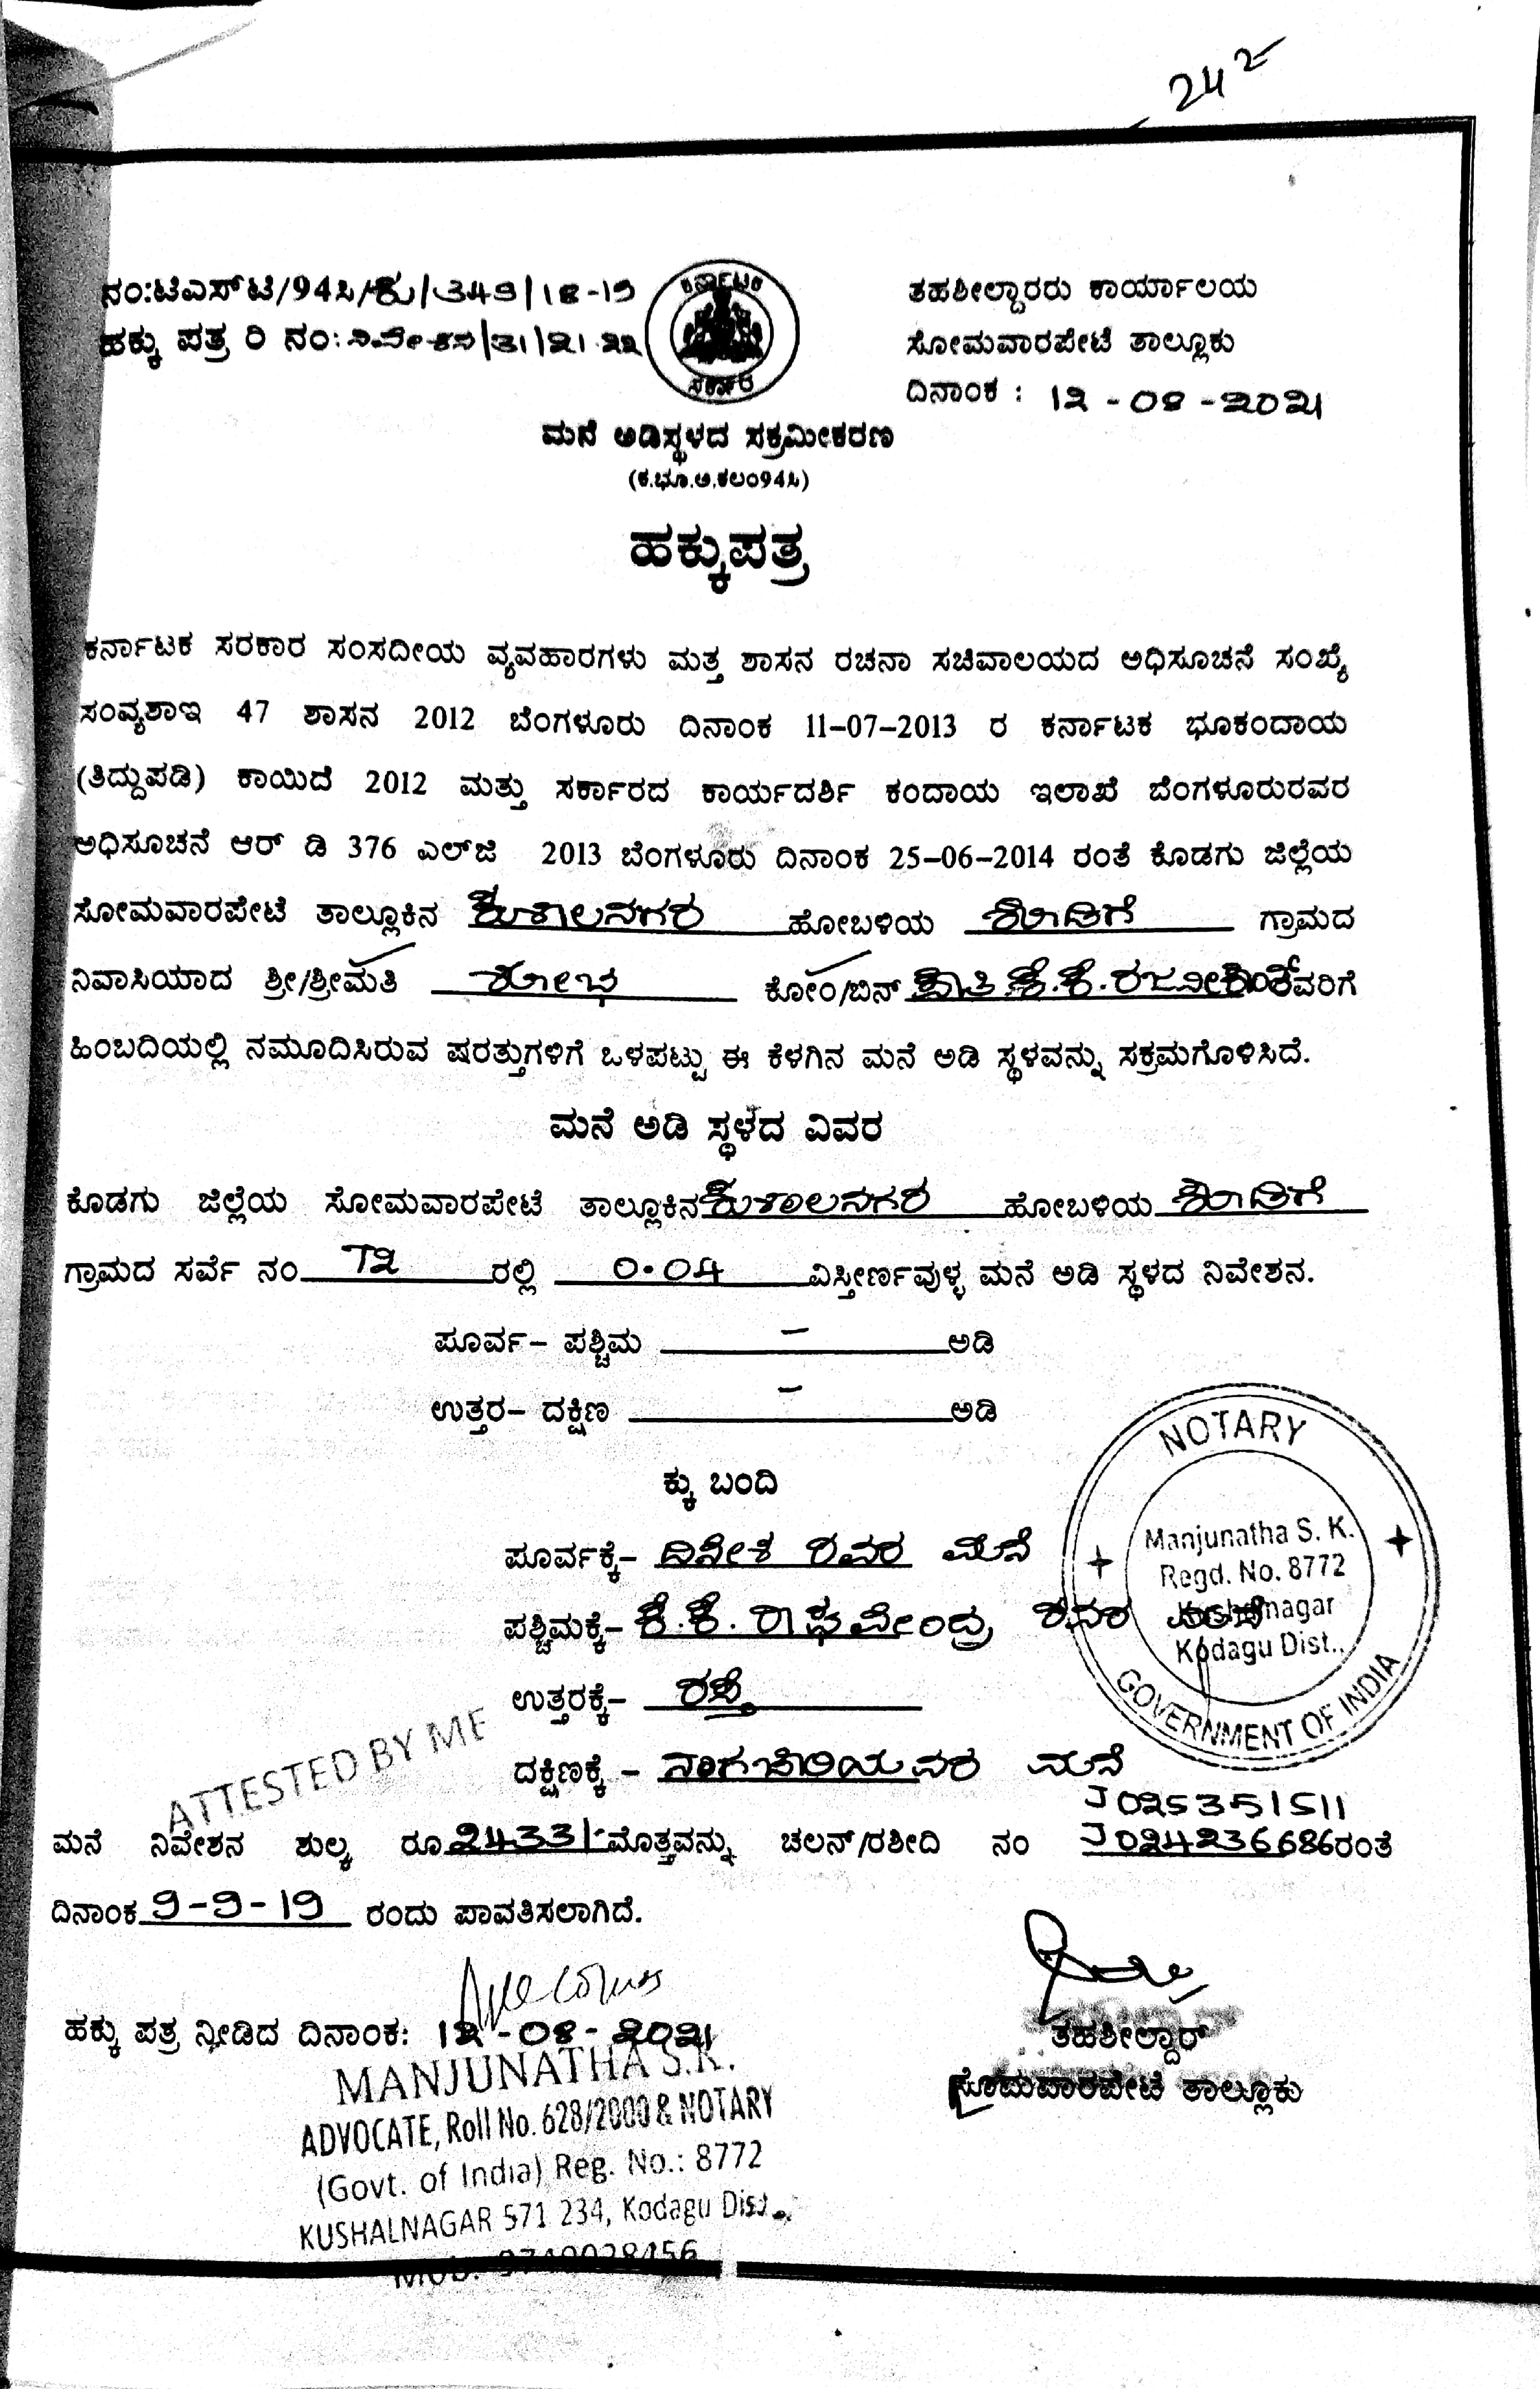 24 2
ನಂ:ಟಿಎಸ್‌ಟಿ/94ಸಿ/ಕು/349/18-19
ಹಕ್ಕು ಪತ್ರ ರಿ ನಂ: /31/21-22
ಕರ್ನಾಟಕ
ಸರ್ಕಾರ
ತಹಶೀಲ್ದಾರರು ಕಾರ್ಯಾಲಯ
ಸೋಮವಾರಪೇಟೆ ತಾಲ್ಲೂಕು
ದಿನಾಂಕ : 12-08-2021
ಮನೆ ಅಡಿಸ್ಥಳದ ಸಕ್ರಮೀಕರಣ
(ಕ.ಭೂ.ಅ.ಕಲಂ94ಸಿ)
ಹಕ್ಕುಪತ್ರ
ಕರ್ನಾಟಕ ಸರಕಾರ ಸಂಸದೀಯ ವ್ಯವಹಾರಗಳು ಮತ್ತ ಶಾಸನ ರಚನಾ ಸಚಿವಾಲಯದ ಅಧಿಸೂಚನೆ ಸಂಖ್ಯೆ
ಸಂವ್ಯಶಾಇ 47 ಶಾಸನ 2012 ಬೆಂಗಳೂರು ದಿನಾಂಕ 11-07-2013 ರ ಕರ್ನಾಟಕ ಭೂಕಂದಾಯ
(ತಿದ್ದುಪಡಿ) ಕಾಯಿದೆ 2012 ಮತ್ತು ಸರ್ಕಾರದ ಕಾರ್ಯದರ್ಶಿ ಕಂದಾಯ ಇಲಾಖೆ ಬೆಂಗಳೂರುರವರ
ಅಧಿಸೂಚನೆ ಆರ್ ಡಿ 376 ಎಲ್‌ಜಿ 2013 ಬೆಂಗಳೂರು ದಿನಾಂಕ 25-06-2014 ರಂತೆ ಕೊಡಗು ಜಿಲ್ಲೆಯ
ಸೋಮವಾರಪೇಟೆ ತಾಲ್ಲೂಕಿನ ಕುಶಾಲನಗರ ಹೋಬಳಿಯ ಕೂಡಿಗೆ ಗ್ರಾಮದ
ನಿವಾಸಿಯಾದ ಶ್ರೀ/ಶ್ರೀಮತಿ ಶೋಭ ಕೋಂ/ಬಿನ್ ಕೆ.ಕೆ. ರಜನೀಕಾಂತ್‌ರವರಿಗೆ
ಹಿಂಬದಿಯಲ್ಲಿ ನಮೂದಿಸಿರುವ ಷರತ್ತುಗಳಿಗೆ ಒಳಪಟ್ಟು ಈ ಕೆಳಗಿನ ಮನೆ ಅಡಿ ಸ್ಥಳವನ್ನು ಸಕ್ರಮಗೊಳಿಸಿದೆ.
ಮನೆ ಅಡಿ ಸ್ಥಳದ ವಿವರ
ಕೊಡಗು ಜಿಲ್ಲೆಯ ಸೋಮವಾರಪೇಟೆ ತಾಲ್ಲೂಕಿನ ಕುಶಾಲನಗರ ಹೋಬಳಿಯ ಕೂಡಿಗೆ
ಗ್ರಾಮದ ಸರ್ವೆ ನಂ 72 ರಲ್ಲಿ 0.04 ವಿಸ್ತೀರ್ಣವುಳ್ಳ ಮನೆ ಅಡಿ ಸ್ಥಳದ ನಿವೇಶನ.
ಪೂರ್ವ- ಪಶ್ಚಿಮ - ಅಡಿ
ಉತ್ತರ- ದಕ್ಷಿಣ - ಅಡಿ
ಕ್ಕು ಬಂದಿ
ಪೂರ್ವಕ್ಕೆ- ದಿನೇಶ ರವರ ಮನೆ
ಪಶ್ಚಿಮಕ್ಕೆ- ಕೆ.ಕೆ. ರಾಘವೇಂದ್ರ ರವರ ಮನೆ
ಉತ್ತರಕ್ಕೆ- ರಸ್ತೆ
ದಕ್ಷಿಣಕ್ಕೆ - ನಾಗಚಾರಿಯವರ ಮನೆ
NOTARY
Manjunatha S. K.
Regd. No. 8772
Kushalnagar
Kodagu Dist.,
GOVERNMENT OF INDIA
ATTESTED BY ME
J025351511
ಮನೆ ನಿವೇಶನ ಶುಲ್ಕ ರೂ 2433/- ಮೊತ್ತವನ್ನು ಚಲನ್/ರಶೀದಿ ನಂ J024236686ರಂತೆ
ದಿನಾಂಕ 9-9-19 ರಂದು ಪಾವತಿಸಲಾಗಿದೆ.
ಹಕ್ಕು ಪತ್ರ ನೀಡಿದ ದಿನಾಂಕ: 12-08-2021
ತಹಶೀಲ್ದಾರ್
ಸೋಮವಾರಪೇಟೆ ತಾಲ್ಲೂಕು
MANJUNATHA S.K.
ADVOCATE, Roll No. 628/2000 & NOTARY
(Govt. of India) Reg. No.: 8772
KUSHALNAGAR 571 234, Kodagu Dist.,